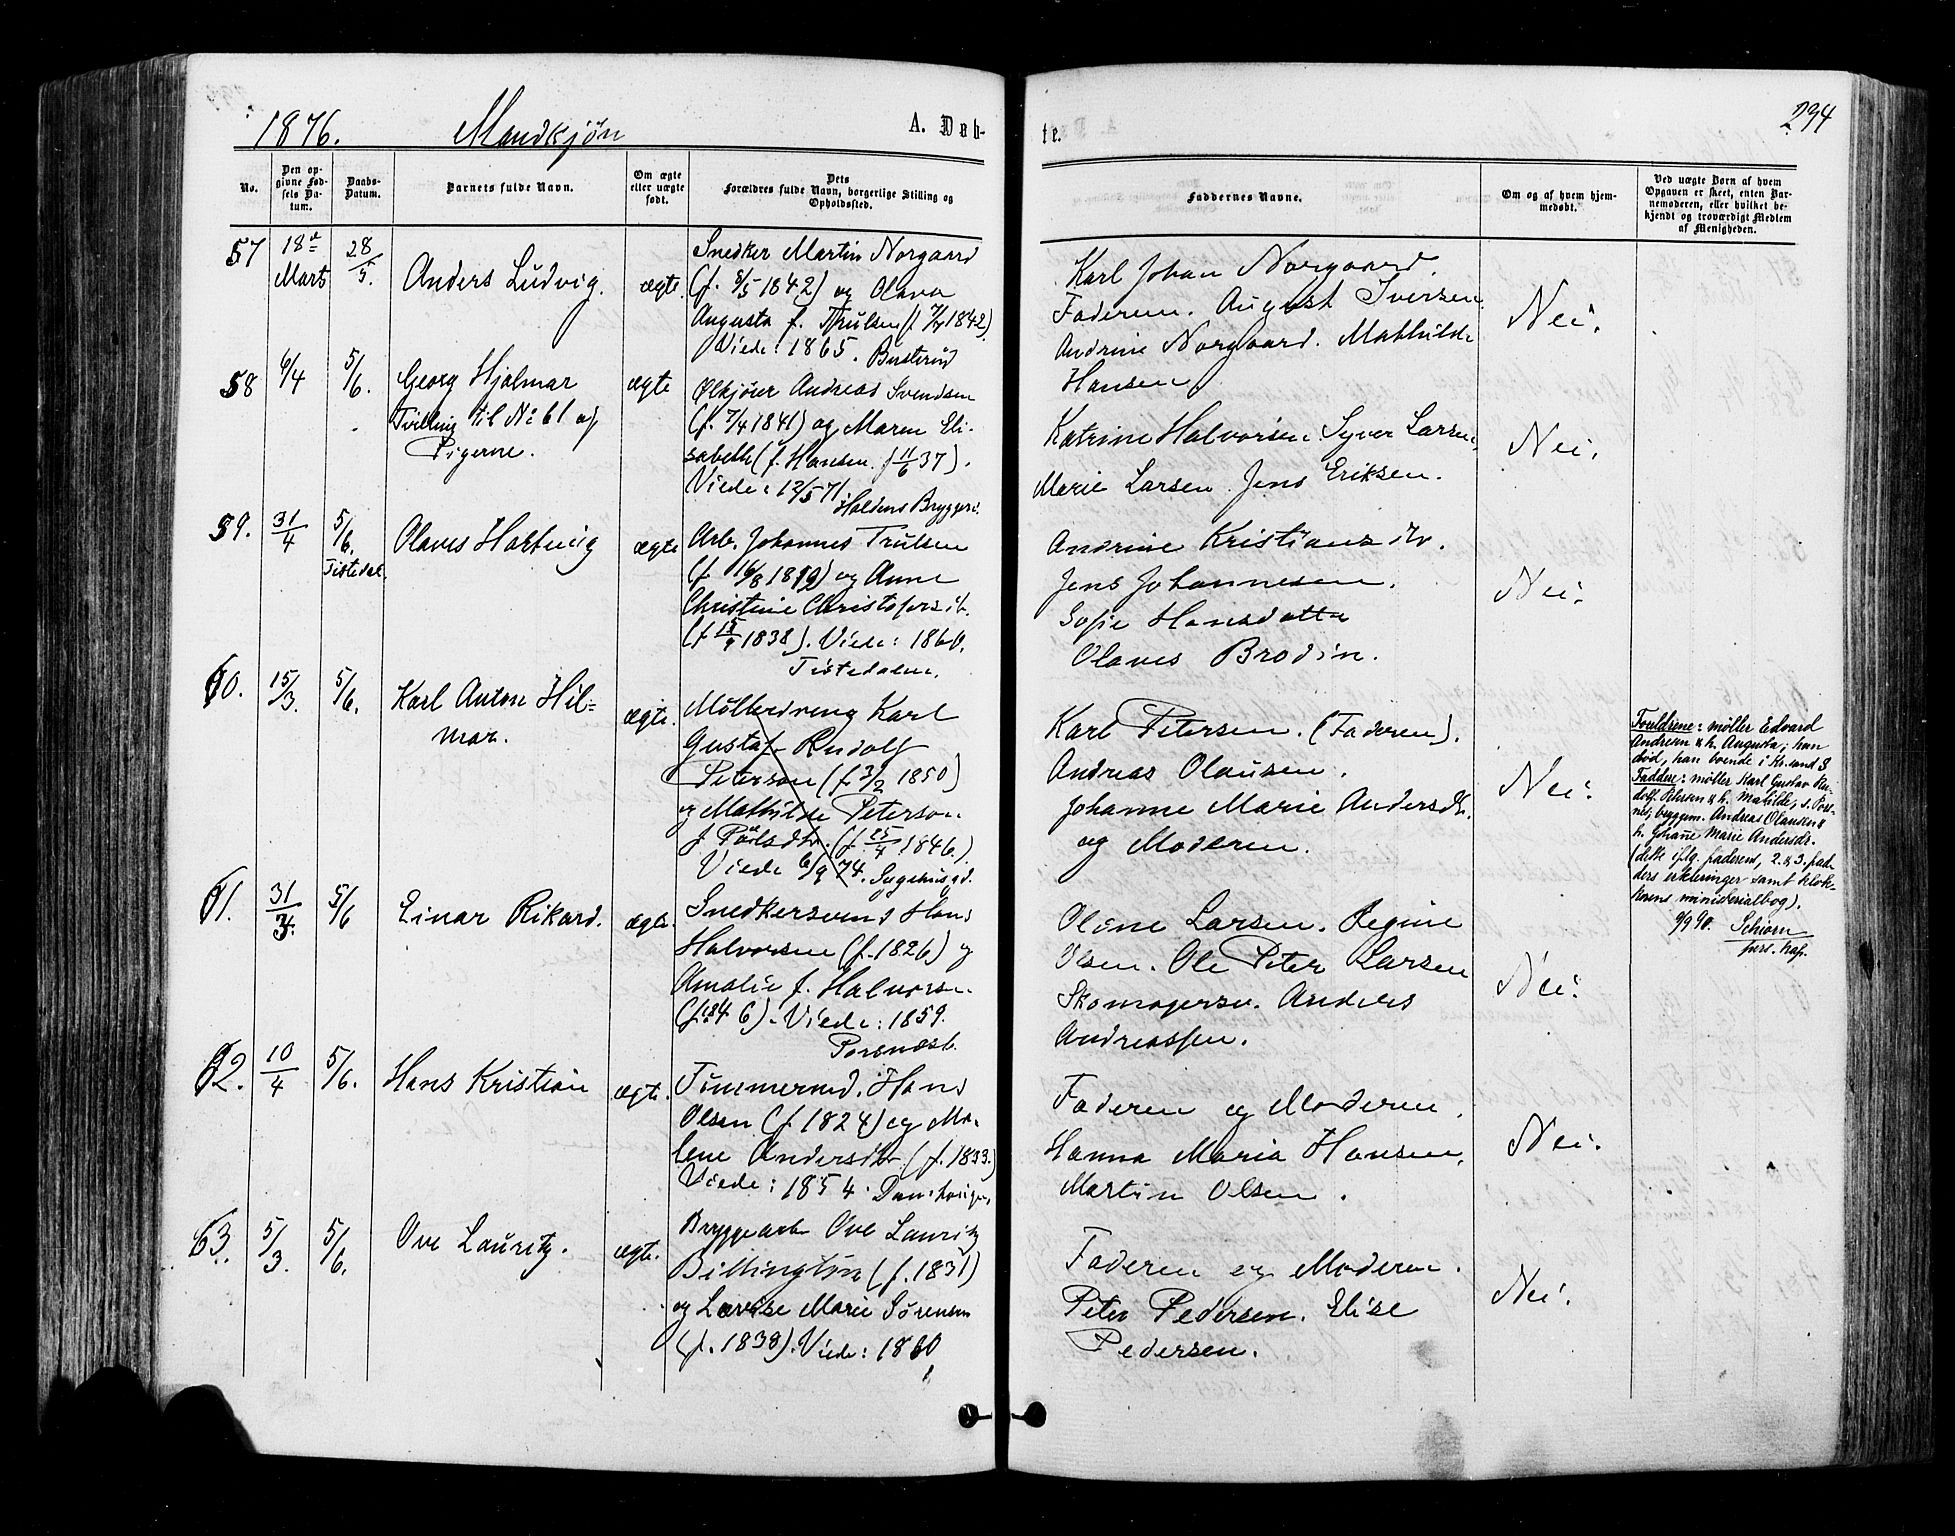 1876. Mandkjøn A. Døb-
No.
Den op-
givne Fød-
sels Da-
tum.
Daabs-
Datum.
Barnets fulde Navn.
Om ægte
eller uægte
født.
Dets
Forældres fulde Navn, borgerlige Stilling og
Opholdssted.
57
18de
Marts
28/5.
Anders Ludvig.
ægte.
Snedker Martin Norgaard
(f. 8/5 1842) og Olava
Augusta f. Trulsen (f. 7/7 1842)
Viede: 1865.
58
6/4
5/6.
Georg Hjalmar
Tvilling til No 61 af
Pigerne.
ægte
Ølkjører Andreas Svendsen
(f. 7/4 1841) og Maren Eli-
sabeth (f. Hansen. f 11/6 37).
Viede: 12/5 71
Haldens Bryggeri.
59.
31/4
5/6.
Tistedal.
Olaves Hartvig
ægte
Arb. Johannes Trulsen
(f. 16/8 1819) og Anne
Christine Christofersdt.
(f 15/9 1838). Viede: 1860.
Tistedalen.
60.
15/3.
5/6.
Karl Anton Hil=
mar.
ægte.
Møllerdreng Karl
Gustaf Rudolf
Peterson (f 3/2 1850)
og Mathilde Peterson
f. Pålsdtr. (f 25/4 1846.)
Viede 6/9 74. Sygehusgd.
61.
31/3.
5/6
Einar Rikard.
ægte.
Snedkersvend Hans
Halvorsen (f. 1826) og
Amalie f. Halvorse.
(f. 1846). Viede: 1859.
62.
10/4
5/6.
Hans Kristian
ægte.
Tømmermd. Hans
Olsen (f. 1824) og Ma-
lene Andersdtr (f. 1833.)
Viede: 1854.
63.
5/3.
5/6.
Ove Lauritz.
ægte.
Bryggearb Ove Lauritz
Billington (f. 1831)
og Lovise Marie Sørensen
(f. 1838). Viede: 1860
te. 294
Faddernes Navne.
Om og af hvem hjem-
medøbt.
Ved uægte Børn af hvem
Opgaven er skeet, enten Bar-
nemoderen, eller hvilket be-
kjendt og troværdigt Medlem
af Menigheden.
Karl Johan Norgaard.
Faderen. August Iversen
Andrine Norgaard. Mathilde
Hansen
Nei.
Katrine Halvorsen. Syver Larsen.
Marie Larsen. Jens Eriksen.
Nei.
Andrine Kristiansdtr.
Jens Johannesen.
Sofie Hansdatter
Olaves Brodin.
Nei.
Karl Petersen. (Faderen).
Andreas Olausen.
Johanne Marie Andersdtr.
og Moderen.
Nei.
Forældrene: møller Edvard
Andresen & h. Augusta; han
død, hun boende i Kr.sand S
Faddere: møller Karl Gustav Ru-
dolf Petersen & h. Matilde,
byggem. Andreas Olausen &
h. Johanne Marie Andersdr.
(dette iflg. faderens, 2. & 3. fad-
ders erklæringer samt klok-
kerens ministerialbog).
9/9 90. Schiørn
pers. kap.
Oline Larsen. Regine
Olsen. Ole Peter Larsen
Skomagersv. Anders
Andreassen.
Nei.
Faderen og Moderen.
Hanna Maria Hansen.
Martin Olsen.
Nei.
Faderen og Moderen.
Peter Pedersen. Elise
Pedersen.
Nei.